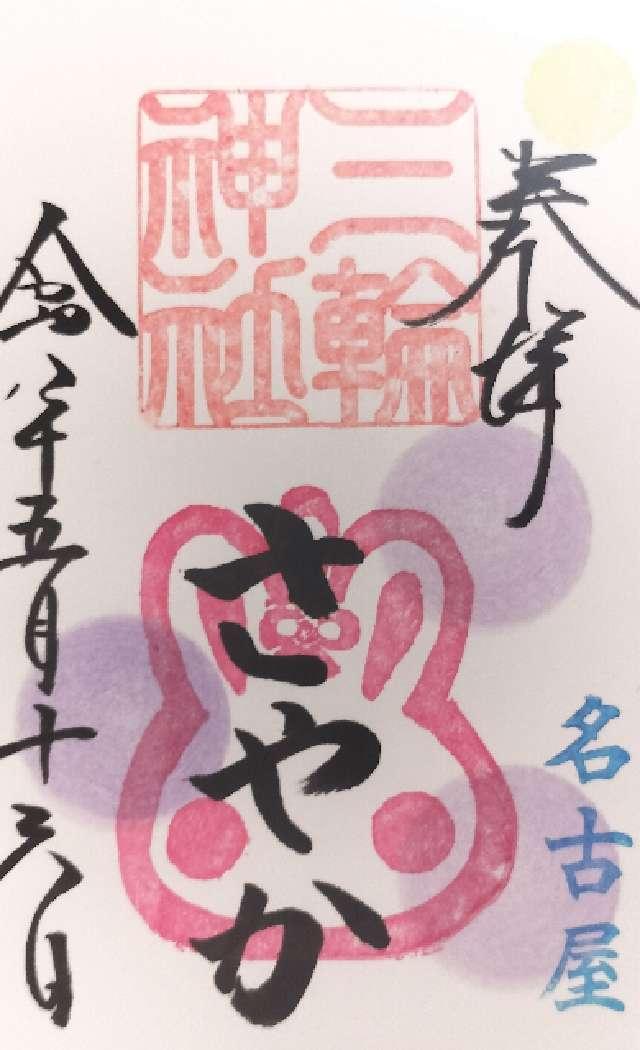 奉拝
名古屋
三輪
神社
さやか
令和八年五月十六日